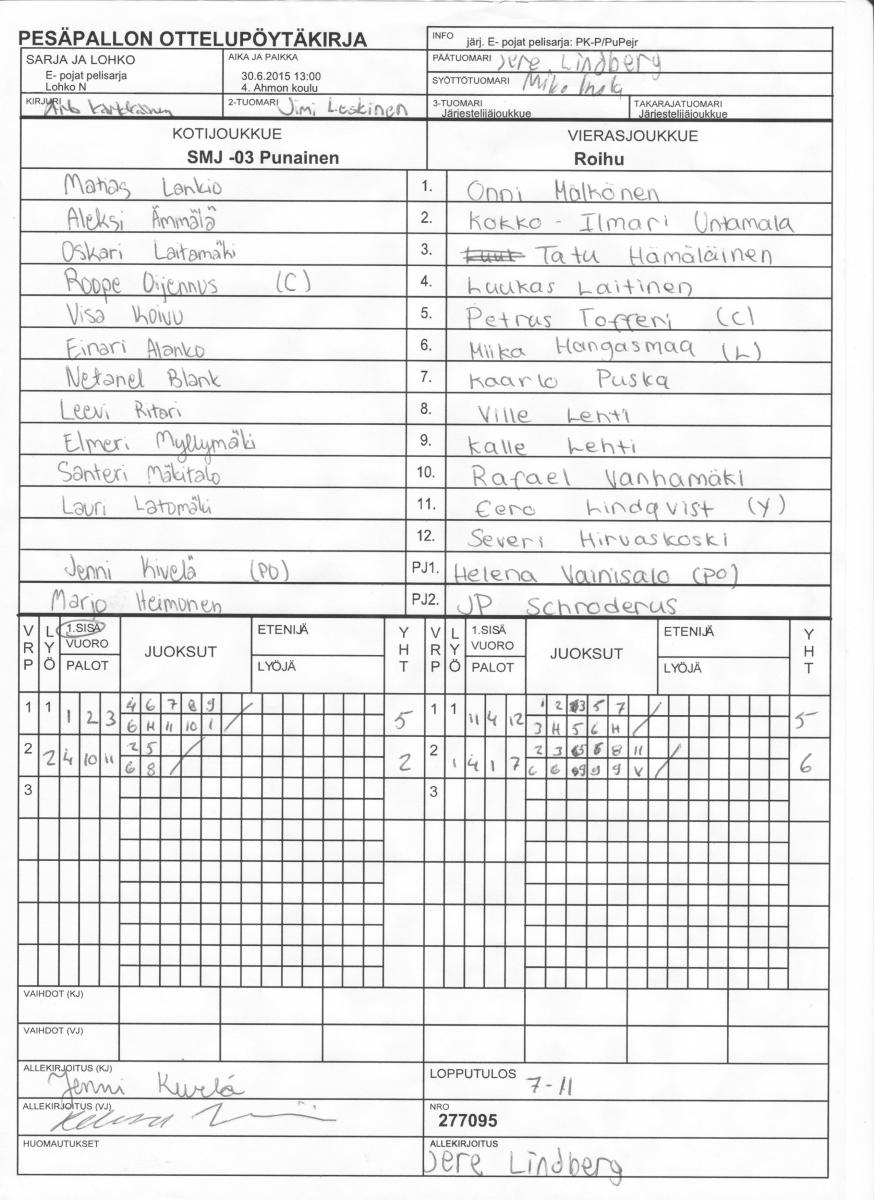 PESÄPALLON OTTELUPÖYTÄKIRJA
INFO järj. E- pojat pelisarja: PK-P/PuPejr
SARJA JA LOHKO
E- pojat pelisarja
Lohko N
AIKA JA PAIKKA
30.6.2015 13:00
4. Ahmon koulu
PÄÄTUOMARI Jere Lindberg
SYÖTTÖTUOMARI Miko
KIRJURI
2-TUOMARI Jimi Leskinen
3-TUOMARI
Järjestelijäjoukkue
TAKARAJATUOMARI
Järjestelijäjoukkue
KOTIJOUKKUE
SMJ -03 Punainen
VIERASJOUKKUE
Roihu
Matias Lankio 1. Onni Mälkönen
Aleksi Ämmälä 2. Kokko - Ilmari Untamala
Oskari Laitamäki 3. Tatu Hämäläinen
Roope Oijennus (C) 4. Luukas Laitinen
Visa Koivu 5. Petrus Tofferi (C)
Einari Alanko 6. Miika Hangasmaa (L)
Netanel Blank 7. Kaarlo Puska
Leevi Ritari 8. Ville Lehti
Elmeri Myllymäki 9. Kalle Lehti
Santeri Mäkitalo 10. Rafael Vanhamäki
Lauri Latomäki 11. Eero Lindqvist (Y)
12. Severi Hirvaskoski
Jenni Kivelä (PO) PJ1. Helena Vainisalo (PO)
Marjo Heimonen PJ2. JP Schroderus
VRP LYÖ 1.SISÄ VUORO PALOT JUOKSUT ETENIJÄ LYÖJÄ YHT VRP LYÖ 1.SISÄ VUORO PALOT JUOKSUT ETENIJÄ LYÖJÄ YHT
1 1 1 2 3 4 6 7 8 9 5 1 1 11 4 12 1 2 3 5 7 5
6 H 11 10 1 3 H 5 6 H
2 2 4 10 11 2 5 2 2 1 4 1 7 2 3 5 6 8 11 6
6 8 6 6 9 9 9 V
3 3
VAIHDOT (KJ)
VAIHDOT (VJ)
ALLEKIRJOITUS (KJ) Jenni Kivelä
LOPPUTULOS 7-11
ALLEKIRJOITUS (VJ)
NRO
277095
HUOMAUTUKSET
ALLEKIRJOITUS
Jere Lindberg